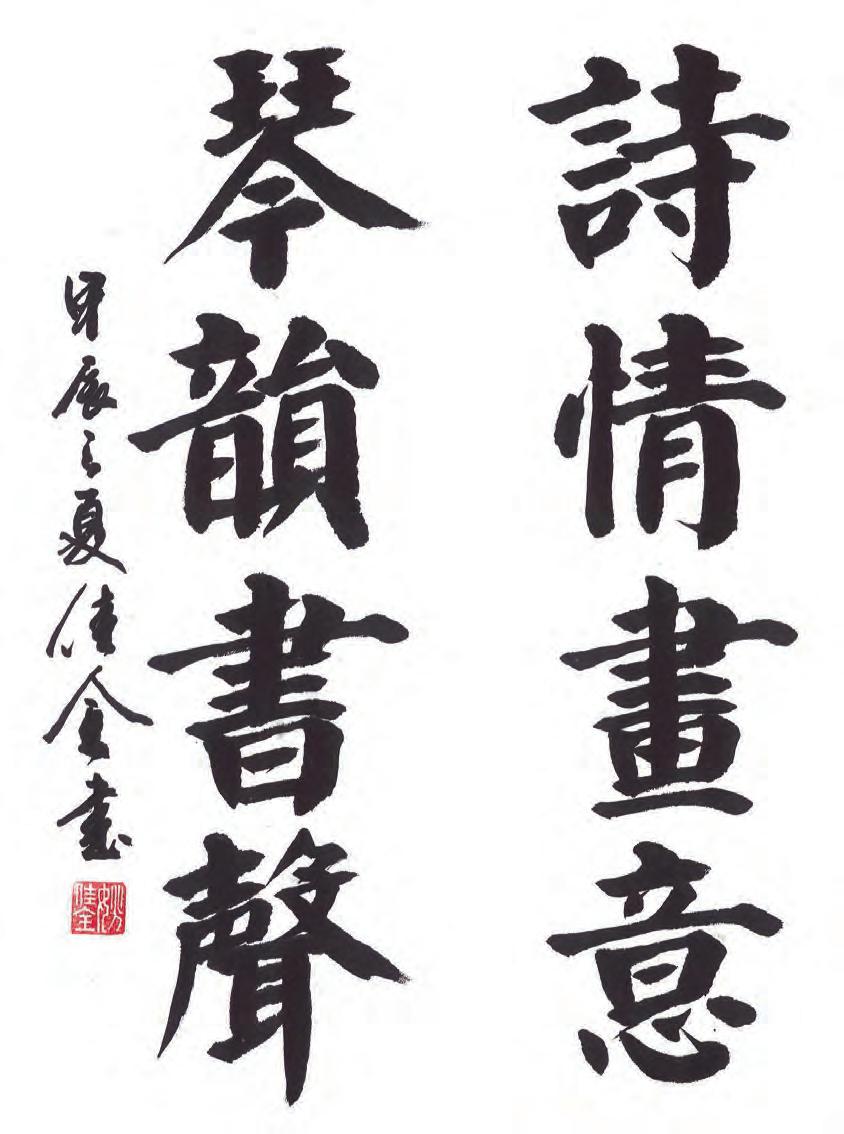 詩情畫意
琴韻書聲
甲辰之夏佳全書
姚佳全